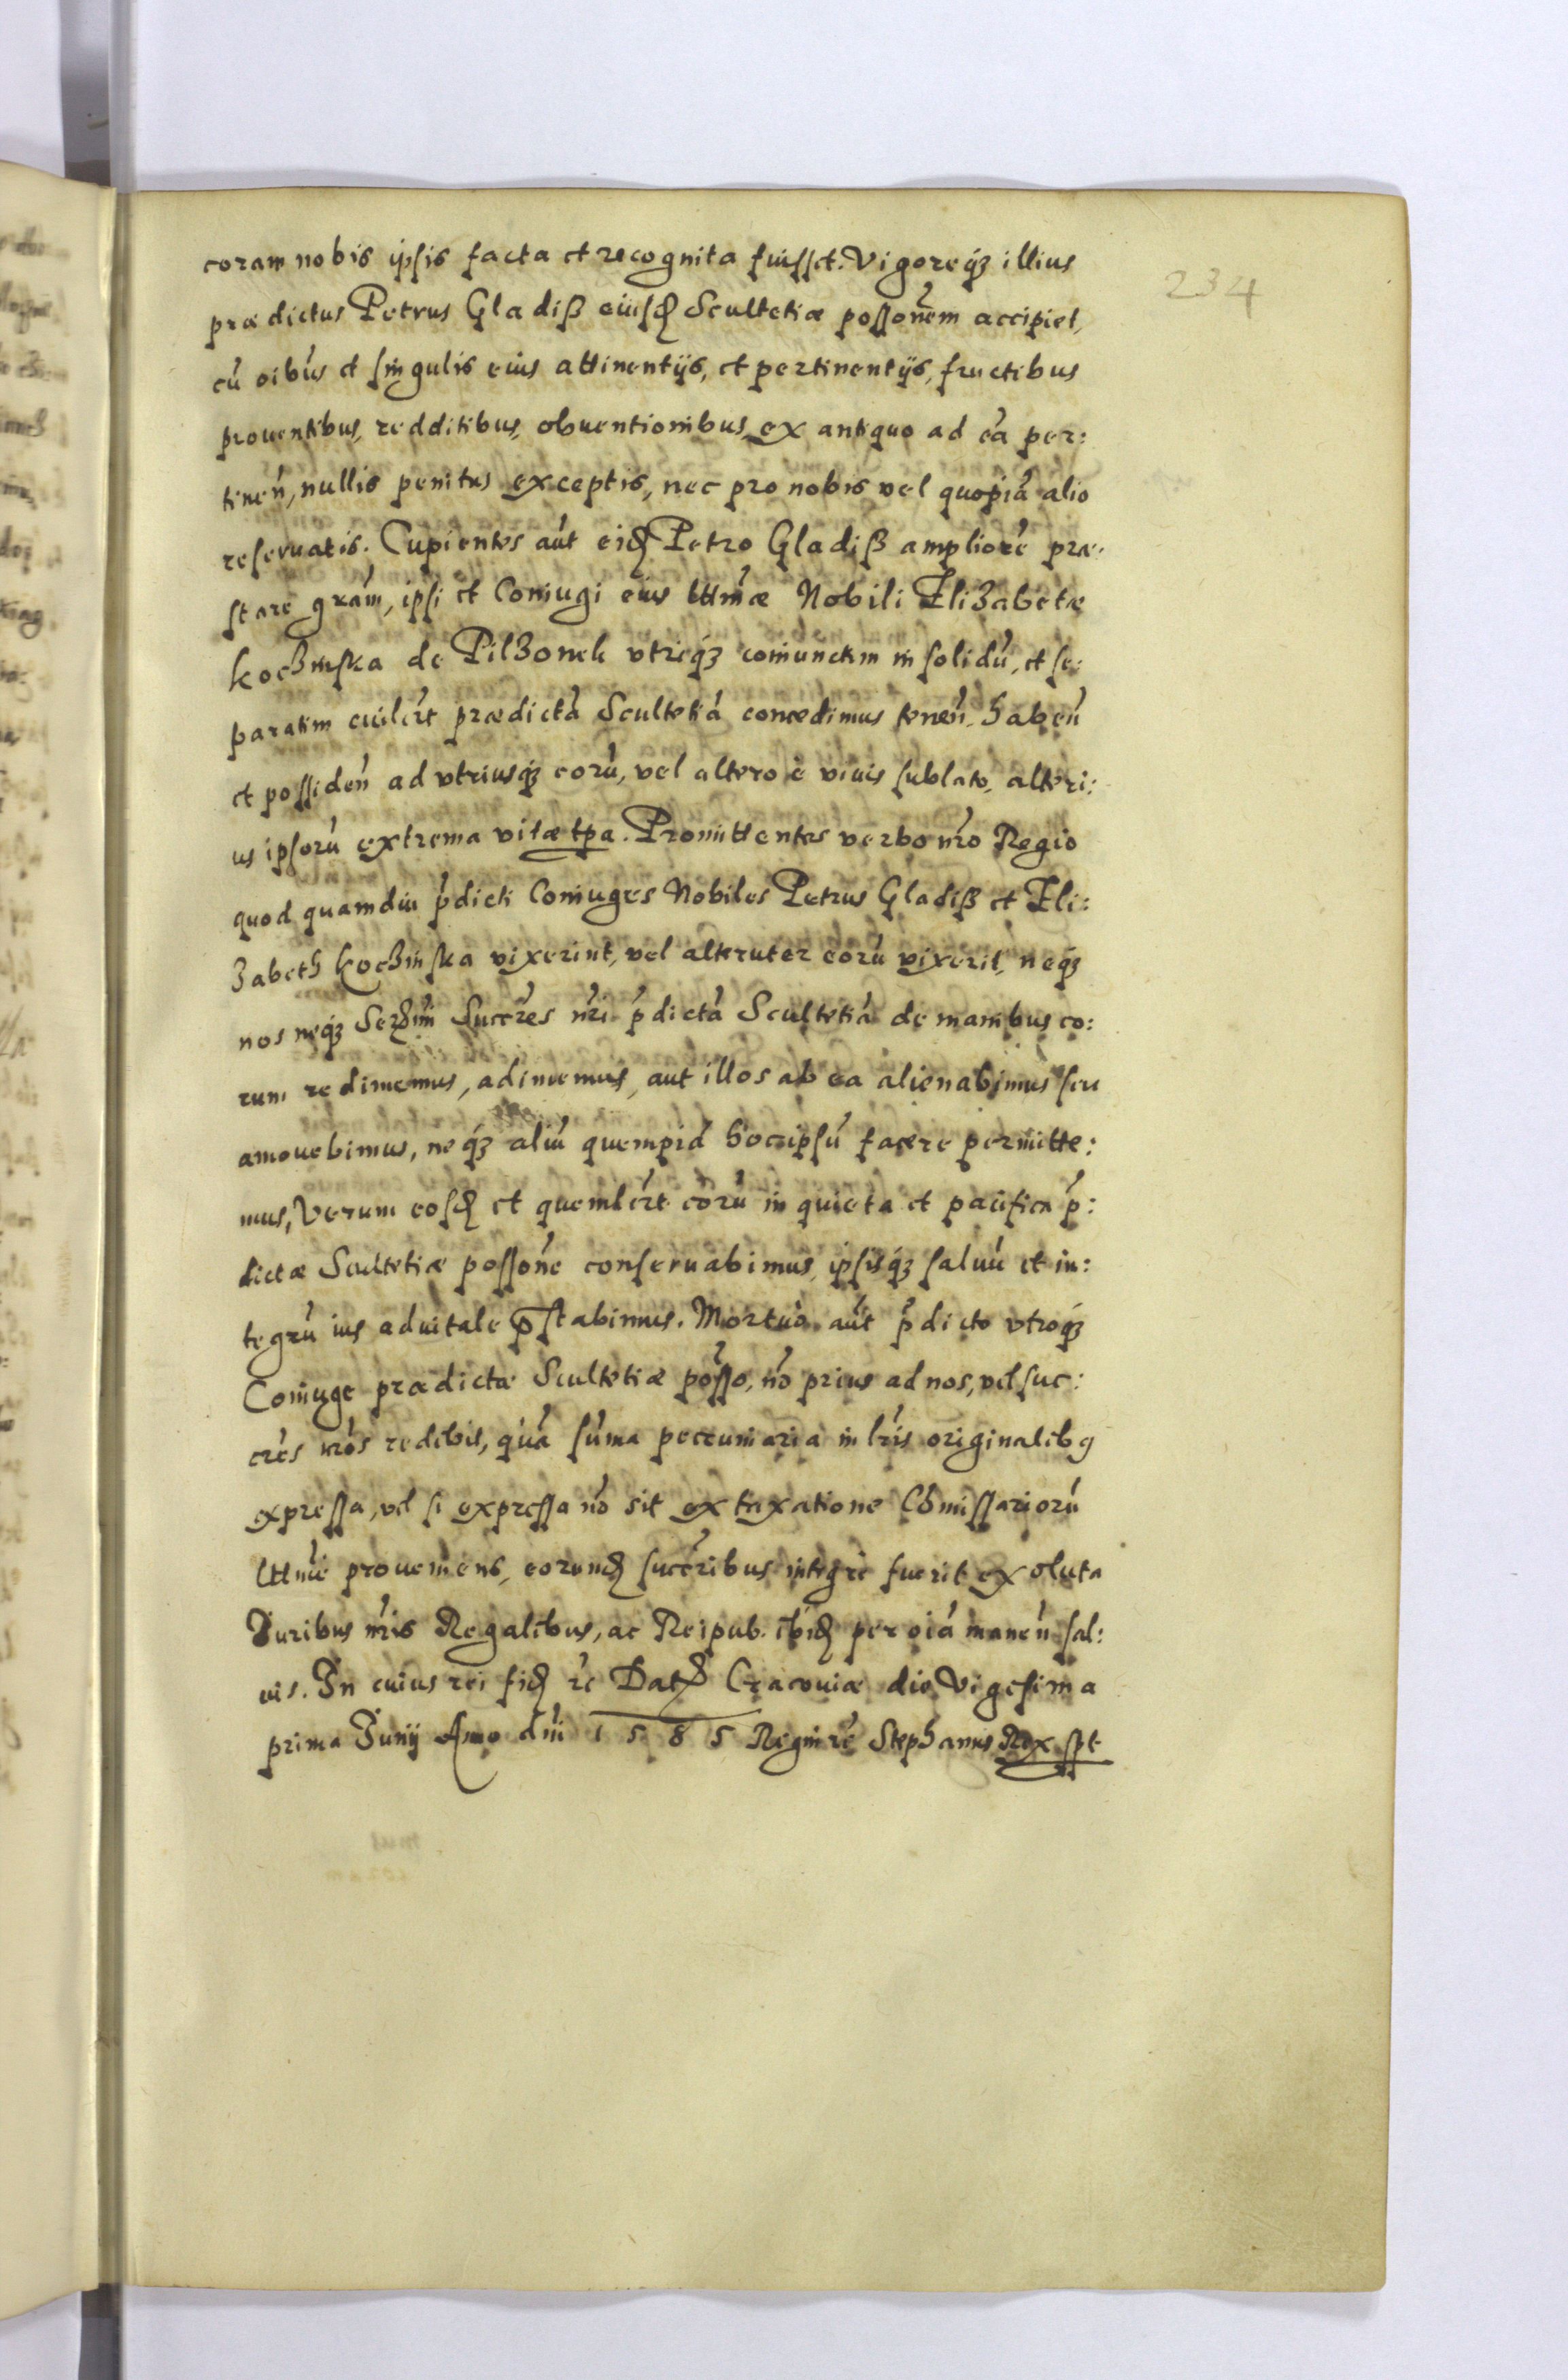 234
coram nobis ipsis facta et recognita fuisset. Vigoreq́ꝫ illius
prædictus Petrus Gladiß eiusd Scultetiæ possoñem accipiet,
cũ oibus et singulis eius attinentijs, et pertinentijs, fructibus
prouentibus, redditibus, obuentionibus, ex antiquo ad eã per:
tineñ, nullis penitus exceptis, nec pro nobis vel quopiã alio
reseruatis. Cupientes aũt eid Petro Gladiß ampliorẽ præ:
stare grãm, ipsi et Coniugi eius lttmæ Nobili Elizabetæ
Koczinska de Pilzonek vtriq́ꝫ coniunctim in solidũ, et se:
paratim cuilẽt prædictã Scultetiã concedimus teneñ. habeñ
et possideñ ad vtriusq́ꝫ eorũ, vel altero è viuis sublato, alteri:
us ipsorũ extrema vitæ tpa. Promittentes verbo nrõ Regio
quod quamdiu ṕdicti Coniuges Nobiles Petrus Gladiß et Eli:
zabeth Koczinska vixerint, vel alteruter eorũ vixerit, neq́ꝫ
nos neq́ꝫ Serẽmi Succr̃es nr̃i ṕdictã Scultetiã de manibus eo:
rum redimemus, adimemus, aut illos ab ea alienabimus seu
amouebimus, neq́ꝫ aliũ quempiã hocipsũ facere permitte:
mus, Verum eosd et quemlẽt eorũ in quieta et pacifica ṕ:
dictæ Scultetiæ possoñe conseruabimus, ipsisq́ꝫ saluũ et in:
tegrũ ius aduitale p̃stabimus. Mortuo aũt p̃dicto vtroq́ꝫ
Coniuge prædictæ Scultetiæ posso, nõ prius ad nos, vel suc:
crẽs nrõs redibit, quã sũma pecuniaria in lrĩs originalibꝯ
expressa, vel si expressa nõ sit ex taxatione Cõmissariorũ
lttmẽ proueniens, eorund succr̃ibus integrè fuerit exoluta
Juribus nrĩs Regalibus, ac Reipub. ibid per oiã maneñ sal:
uis. In cuius rei fid rc̃ Dat Cracouiæ die Vigesima
prima Junij Anno dñi 1585 Regni rc̃ Stephanus Rex spt